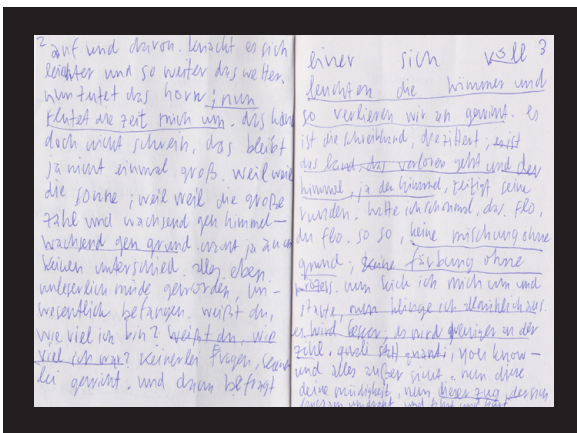 2
auf und davon. knackt es sich
leichter und so weiter das wetter.
nun tutet das horn; nun
flutet die zeit mich um. das
doch nicht schwein, das bleibt
ja nicht einmal groß. weil weil
die sonne; weil weil die große
zahl und wachsend gen himmel –
wachsend gen grund macht ja auch
keinen unterschied. alles eben
unleserlich müde geworden, un-
wesentlich befangen. weißt du,
wie viel ich bin? weißt du, wie
viel ich war? keinerlei fragen,
lei gewicht. und dann befragt
3
einer sich voll
leuchten die himmel und
so verlieren wir an gewicht. es
ist die schreibhand, die zittert; es ist
das land, das verloren geht und der
himmel, ja der himmel, zeitigt seine
runden. hatte ich schonmal, das. flo,
du flo. so so, keine mischung ohne
grund; keine färbung ohne
prozess. nun kick ich mich um und
starte, nun klinge ich allmählich aus.
es wird besser, es wird weniger an der
zahl. quali statt quanti, you know –
und alles außer sinnt. nun diese
deine müdigkeit, nun dieser zug, der sich
und